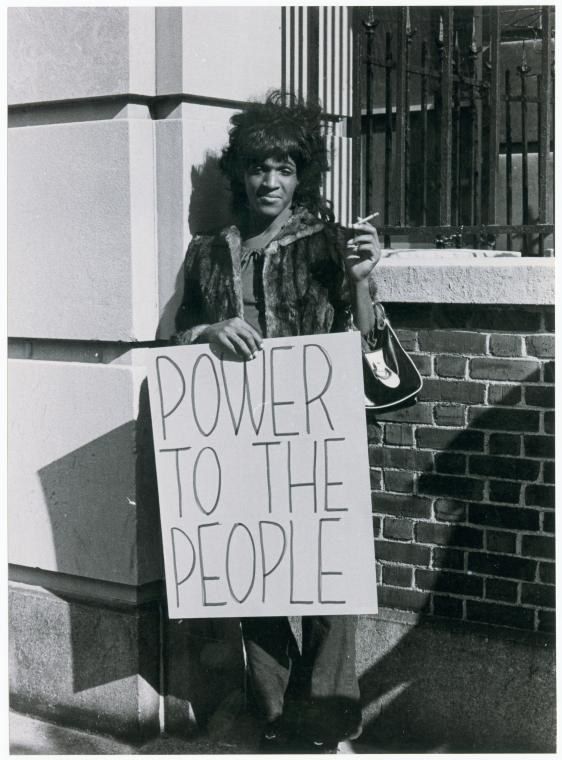 POWER
TO THE
PEOPLE